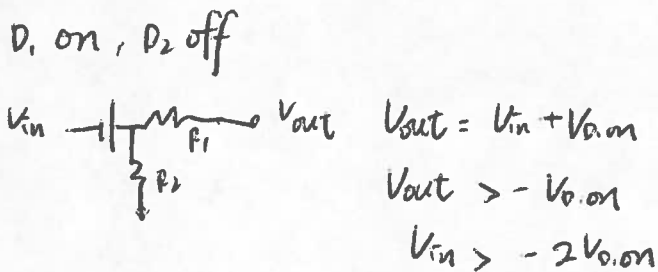 D1 on, D2 off
Vin R1 Vout Vout = Vin + VD.on
R2 Vout > - VD.on
Vin > - 2VD.on